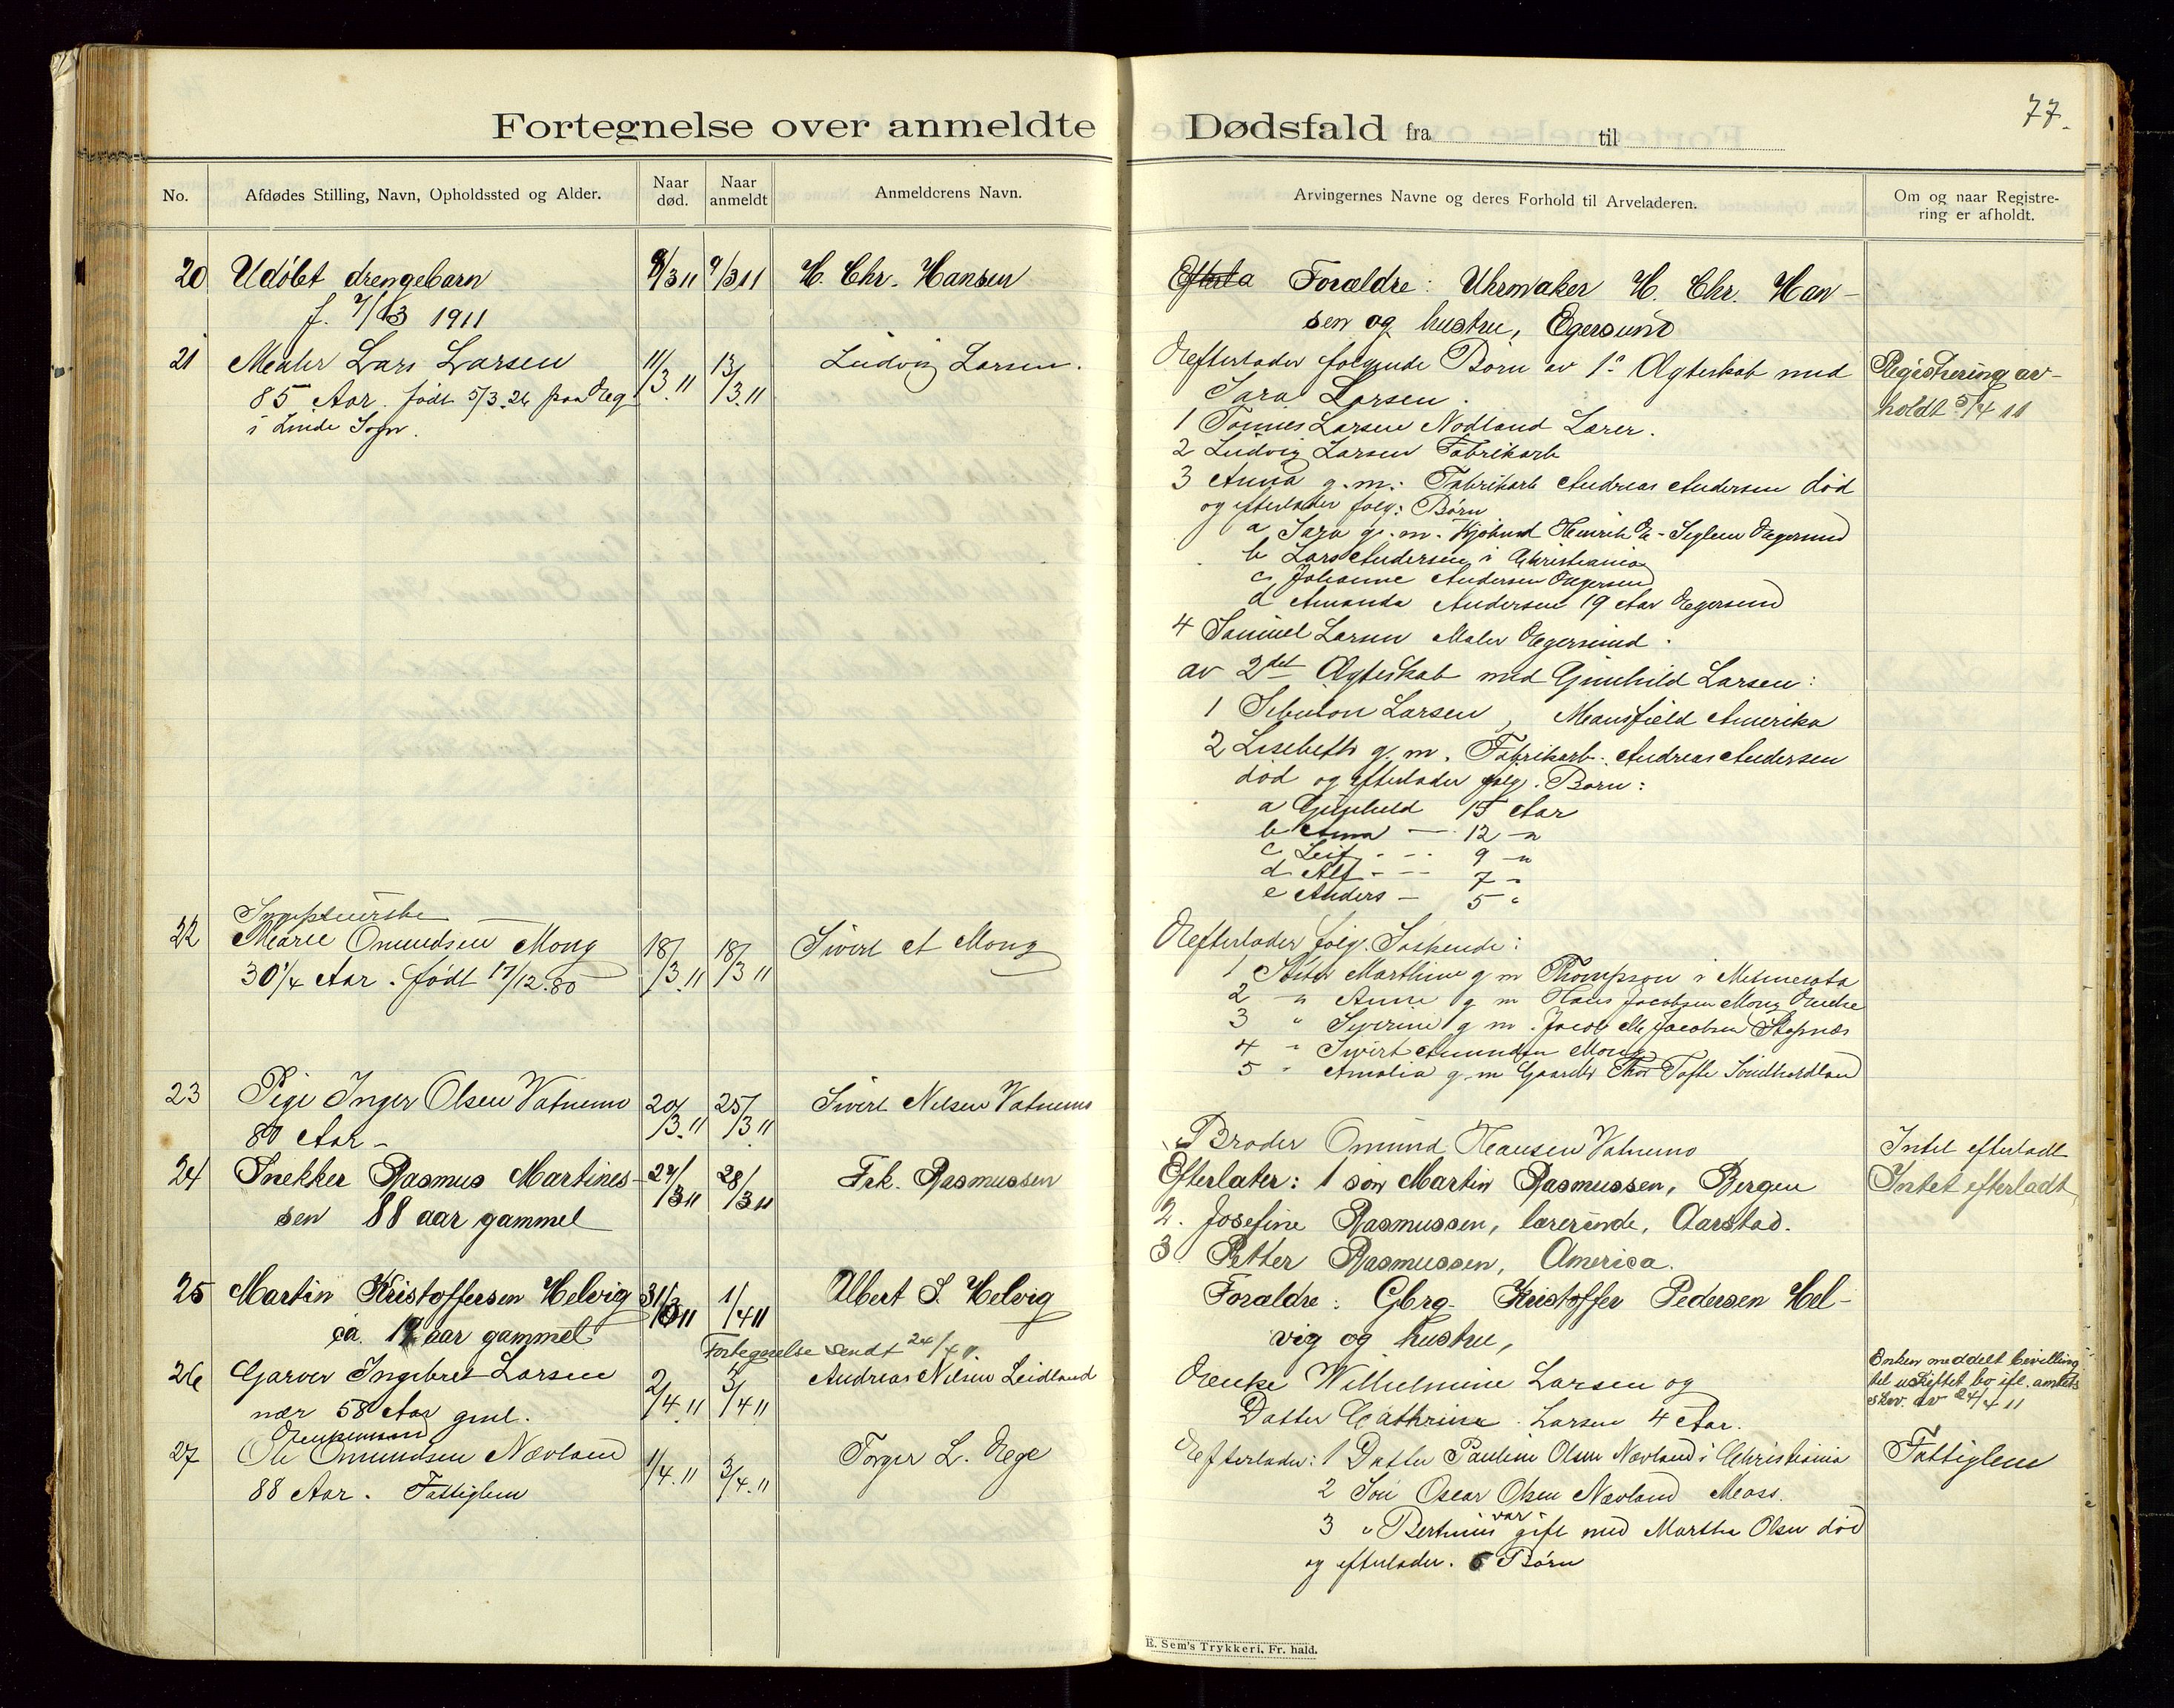 77.
Fortegnelse over anmeldte Dødsfald fra til
No.
Afdødes Stilling, Navn, Opholdssted og Alder.
Naar død.
Naar anmeldt
Anmelderens Navn.
Arvingernes Navne og deres Forhold til Arveladeren.
Om og naar Registrering er afholdt.
20 Udøbt drengebarn 8/3 11 9/3 11 H. Chr. Hansen
f. 7/3 1911
Forældre: Uhrmaker H. Chr. Han-
sen og hustru, Egersund
21 Maler Lars Larsen 11/3.11 13/3.11 Ludvig Larsen.
85 Aar. født 5/3.26 paa Æg
i Lunde Sogn.
Efterlader følgende Børn av 1ste Ægteskab med
Sara Larsen.
1 Tønnes Larsen Nodland Lærer.
2 Ludvig Larsen Fabrikarb
3 Anna g.m. Fabrikarb Andreas Andersen død
og efterlader følg: Børn
a Sara g.m. Kjøbmd Henrik E. Seglem Egersund
b Lars Andersen i Christiania
c Johanne Andersen Egersund
d Amanda Andersen 19 Aar Egersund
4 Samuel Larsen Maler Egersund.
av 2det Ægteskab med Gunhild Larsen:
1 Sebulon Larsen, Mansfield Amerika
2 Lisebeth g.m. Fabrikarb. Andreas Andersen
død og efterlader følg. Børn:
a Gunhild 15 Aar
b Anna — 12 —"
c Leif - - 9 —"
d Alf - — 7 "
e Anders — 5 "
Registrering av-
holdt 5/4 11
22 Marie Omundsen Mong 18/3.11 18/3 11 Sivert A Mong
30 1/4 Aar. født 17/12.80
Efterlader følg. Søskende:
1 Søster Marthine g m Thompson i Minnesota
2 " Anne g m Hans Jacobsen Mong Enke
3 " Severine g m. Jacob Jacobsen Stapnæs
4 " Sivert Amundsen Mong
5 " Amalia g m Gaardbr Thor Tofte Søndhordland
23 Pige Inger Olsen Vatnemo 20/3.11 25/3 11 Sivert Nilsen Vatnemo
80 Aar -
Broder Omund Hansen Vatnemo
Intet efterladt
24 Snekker Rasmus Martines- 27/3 11 28/3 11 Frk. Rasmussen
sen 88 aar gammel
Efterlater: 1 søn Martin Rasmussen, Bergen
2. Josefine Rasmussen, lærerinde, Aarstad.
3. Petter Rasmussen, America.
Intet efterladt
25 Martin Kristoffersen Helvig 31/3 11 1/4 11 Albert S. Helvig
ca. 19 aar gammel
Forældre: Gbrg. Kristoffer Pedersen Hel-
vig og hustru,
Fortegnelse sendt 24/4 11
26 Garver Ingebret Larsen 2/4.11 3/4 11 Andreas Nilsen Leidland
nær 58 Aar gml.
Enke Wilhelmine Larsen og
Datter Cathrine Larsen 4 Aar.
Enken meddelt bevilling
til uskiftet bo ifl. amtets
skr. av 24/4 11
Enkemand
27 Ole Omundsen Nævland 1/4.11 3/4.11 Torger L. Ege
88 Aar. Fattiglem
Efterlader: 1 Datter Pauline Olsen Nævland i Christiania
2 Søn Oscar Olsen Nævland Moss.
3 " Bertinius var gift med Martha Olsen død
og efterlader. 6 Børn
Fattiglem
E. Sem's Trykkeri, Fr. hald.